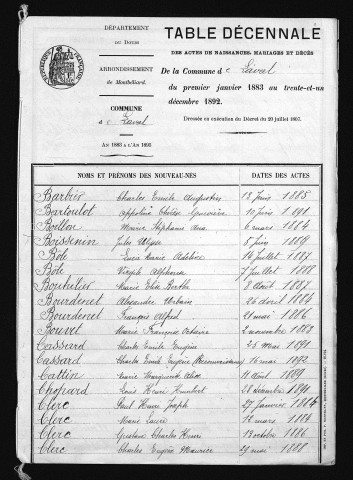 DÉPARTEMENT
DU DOUBS
ARRONDISSEMENT
de Montbéliard.
COMMUNE
de Laval
AN 1883 A L'AN 1893
TABLE DÉCENNALE
DES ACTES DE NAISSANCES, MARIAGES ET DÉCÈS
De la Commune de Laval
du premier janvier 1883 au trente-et-un
décembre 1892.
Dressée en exécution du Décret du 20 juillet 1807.
NOMS ET PRÉNOMS DES NOUVEAU-NÉS DATES DES ACTES
Barbier Charles Emile Augustin 18 juin 1885
Bartoulot 10 juin 1891
Boillon Marie Stéphanie 6 mars 1884
Boissenin Jules Ulysse 1889
Bôle Lucie Marie Adeline 16 juillet 1887
Bôle Joseph Alphonse 7 juillet 1888
Bouhelier Marie Elise Berthe 8 Août 1887
Bourdenet Alexandre Urbain 26 avril 1884
Bourdenet François Alfred 21 mai 1886
Bouvet Marie François 2 novembre 1889
Cassard Charles Emile Eugène 25 mai 1891
Cassard Charles Emile Eugène (Reconnaissance) 16 mai 1892
Cattin Marie Marguerite Alice 11 Août 1889
Chopard Louis Henri Humbert 28 décembre 1891
Clerc Paul Henri Joseph 27 janvier 1884
Clerc Marie Laure 12 mars 1885
Clerc Gustave Charles Henri 13 octobre 1886
Clerc Charles Eugène Maurice 27 mai 1888